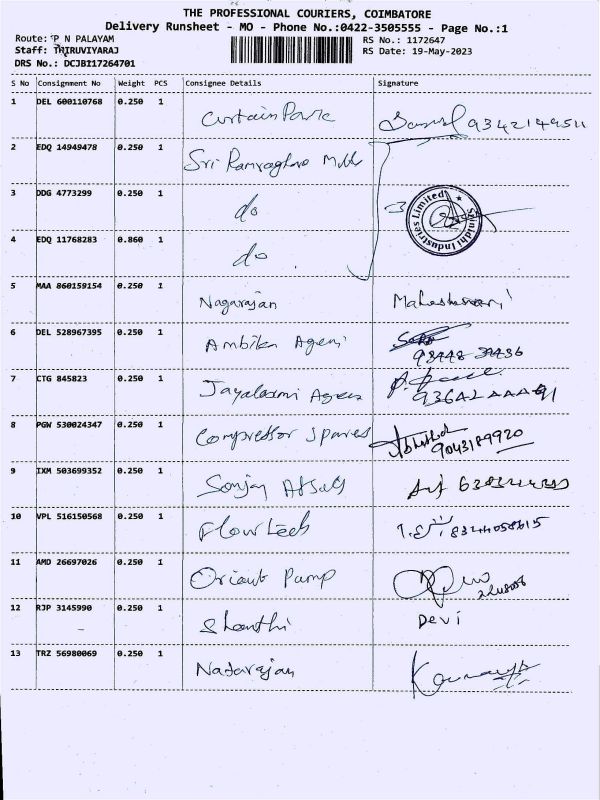 THE PROFESSIONAL COURIERS, COIMBATORE
Delivery Runsheet - MO - Phone No.:0422-3505555 - Page No.:1
Route: P N PALAYAM
RS No.: 1172647
Staff: THIRUVIYARAJ
RS Date: 19-May-2023
DRS No.: DCJBI17264701
S No Consignment No Weight PCS Consignee Details Signature
1 DEL 600110768 0.250 1 Curtain Park 9342149511
2 EDQ 14949478 0.250 1 Sri
3 DDG 4773299 0.250 1 do
Srinidhi Industries Limited
4 EDQ 11768283 0.860 1 do
5 MAA 860159154 0.250 1 Nagarajan Maheshwari
6 DEL 528967395 0.250 1 Ambika
7 CTG 845823 0.250 1 Jayalaxmi
8 PGW 530024347 0.250 1 Compressor Spares 9043189920
9 IXM 503699352 0.250 1 Sanjay
10 VPL 516150568 0.250 1 Flow tech 8344058615
11 AMD 26697026 0.250 1 Orient Pump
12 RJP 3145990 0.250 1 Shanthi Devi
13 TRZ 56980069 0.250 1 Natarajan